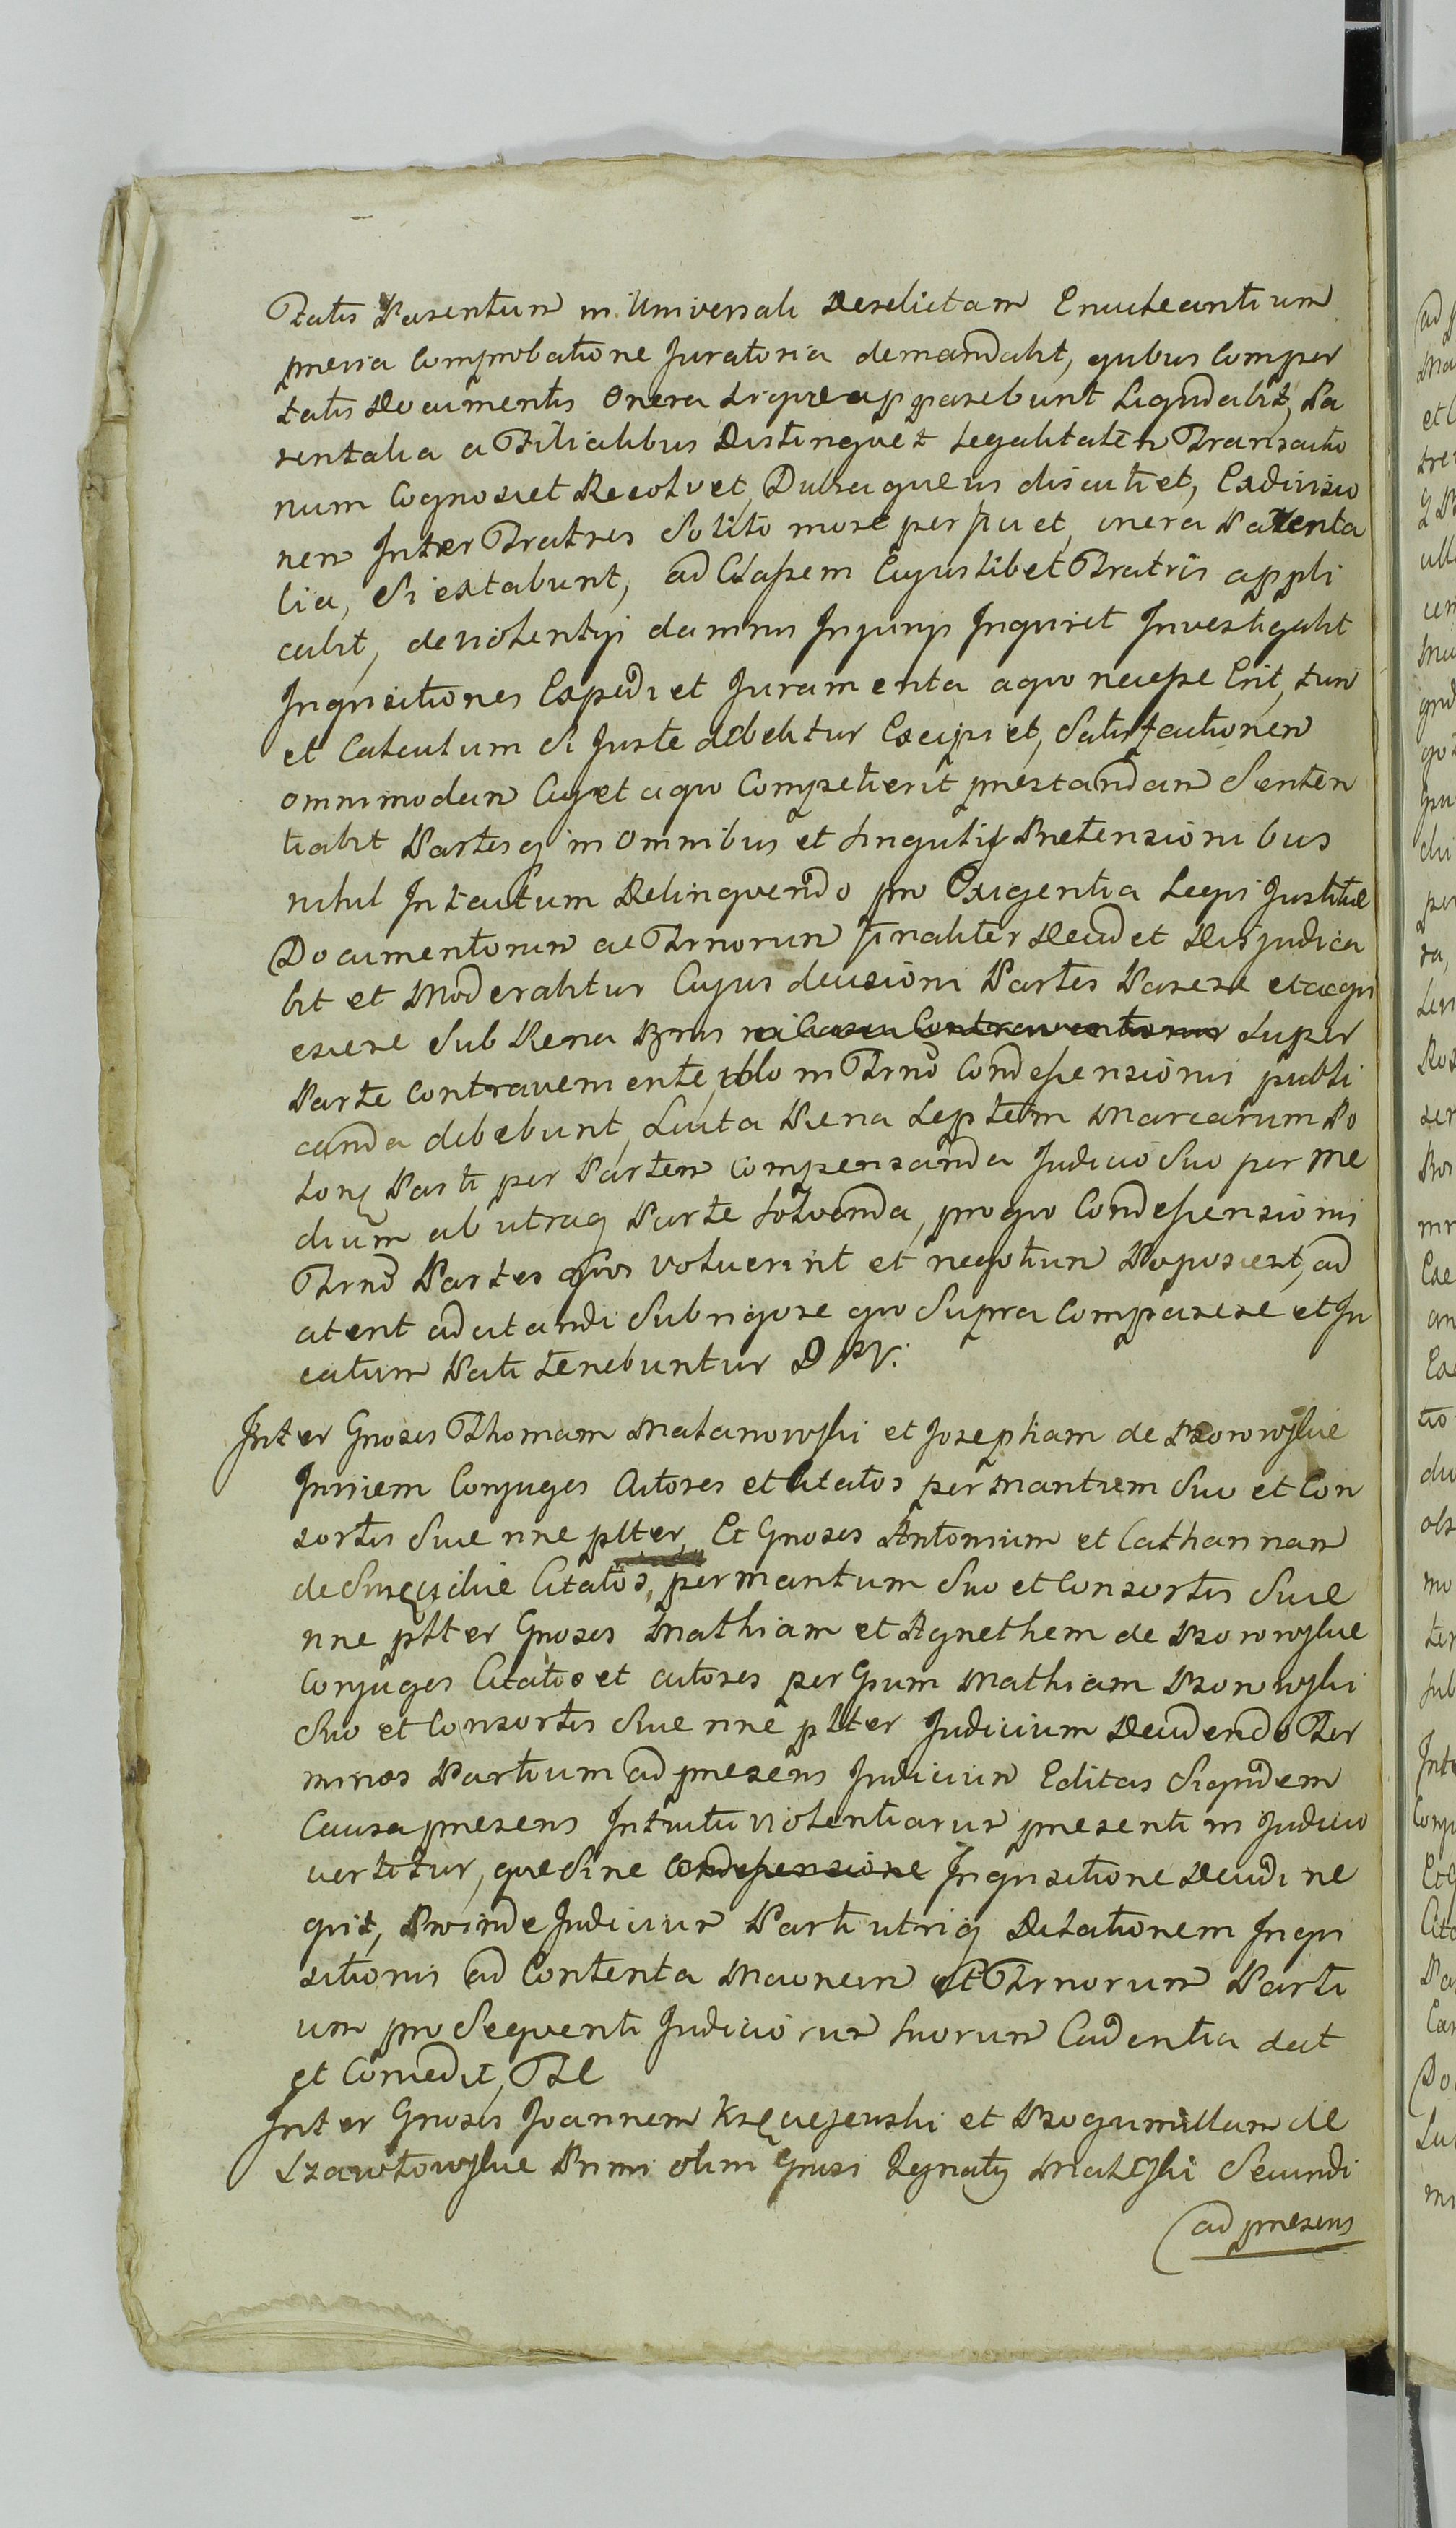 Ztatis Parentum in Universali Derelictam Enucleantium
previa Comprobatione Juratoria demandabit, quibus Compor
tatis Documentis Onera si que apparebunt Liquidabit, Pa
rentalia a Filialibus Distinguet Legalitatem Transactio
num Cognoscet Resolvet, Dubiaque eis discutiet, Exdivisio
nem Inter Fratres Solito more perficiet, onera Parenta
lia, Si extabunt, ad Classem Cujuslibet Fratris appli
cabit, de violentijs damnis Injurijs Inquiret Investigabit
Inquisitiones Expediet Juramenta a quo necesse Erit, tum
et Calculum Si Juste debebitur Excipiet, Satisfactionem
omnimodam Cui et a quo Competierit prestandam Senten
tiabit Partesq in Omnibus et Singulis Pretensionibus
nihil Intactum Relinquendo pro Exigentia Legis Justitiae
Documentorum ac Trnorum finaliter Decidet Disjudica
bit et Moderabitur Cujus decisioni Partes Parere et acqui
escere Sub Pena Bnis in Casu Contraventionis Super
Parte Contraveniente, in Trno Condescensionis publi
canda debebunt, Luita Pena Septem Marcarum Po
lonq Parti per Partem Compensanda Judicio Suo per me
dium ab utraq Parte Solvenda, pro quo Condescensionis
Trno Partes quos voluerint et negotium Poposcerit, ad
atent adcitandi Sub rigore quo Supra Comparere et Ju
catum Pati tenebuntur DPV.
Inter Gnosos Thomam Malanowski et Josepham de Borowskie
Inviem Conjuges Actores et Citatos per Maritum Suo et Con
sortis Sue nne plter, Et Gnosos Antonium et Catharinam
de Citatos, per Maritum Suo et Consortis Sue
nne plter Gnosos Mathiam et Agnethem de Borowskie
Conjuges Citatos et actores per Gsum Mathiam Borowski
Suo et Consortis Sue nne plter Judicium Decidendo Ter
minos Partium ad presens Judicium Editas Siquidem
Causa presens Intuitu violentiarum presenti in Judicio
vertitur, que Sine Condescensione Inquisitione Decidi ne
quit, Proinde Judicium Parti utriq Dilationem Inqui
sitionis ad Contenta Maonem et Trnorum Parti
um pro Sequenti Judiciorum Suorum Cadentia dat
et Concedit, TL
Inter Gnosos Joannem et Bogumillam de
Szawłowskie Primi olim Gnosi Ignatij Secundi
ad presens